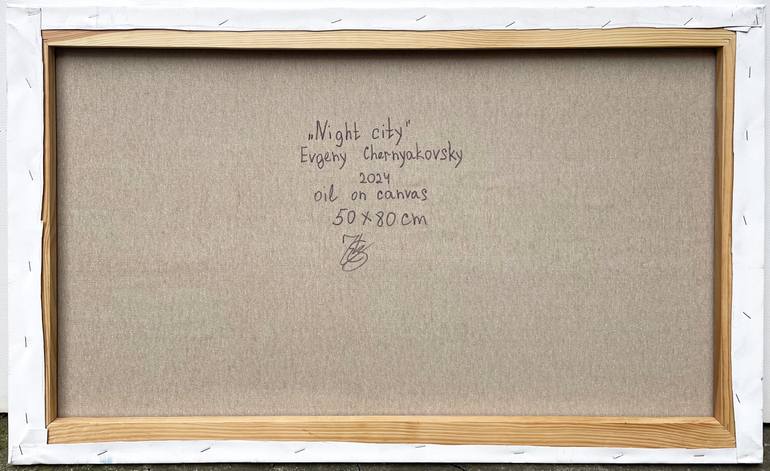 „Night city"
Evgeny Chernyakovsky
2024
oil on canvas
50 x 80 cm